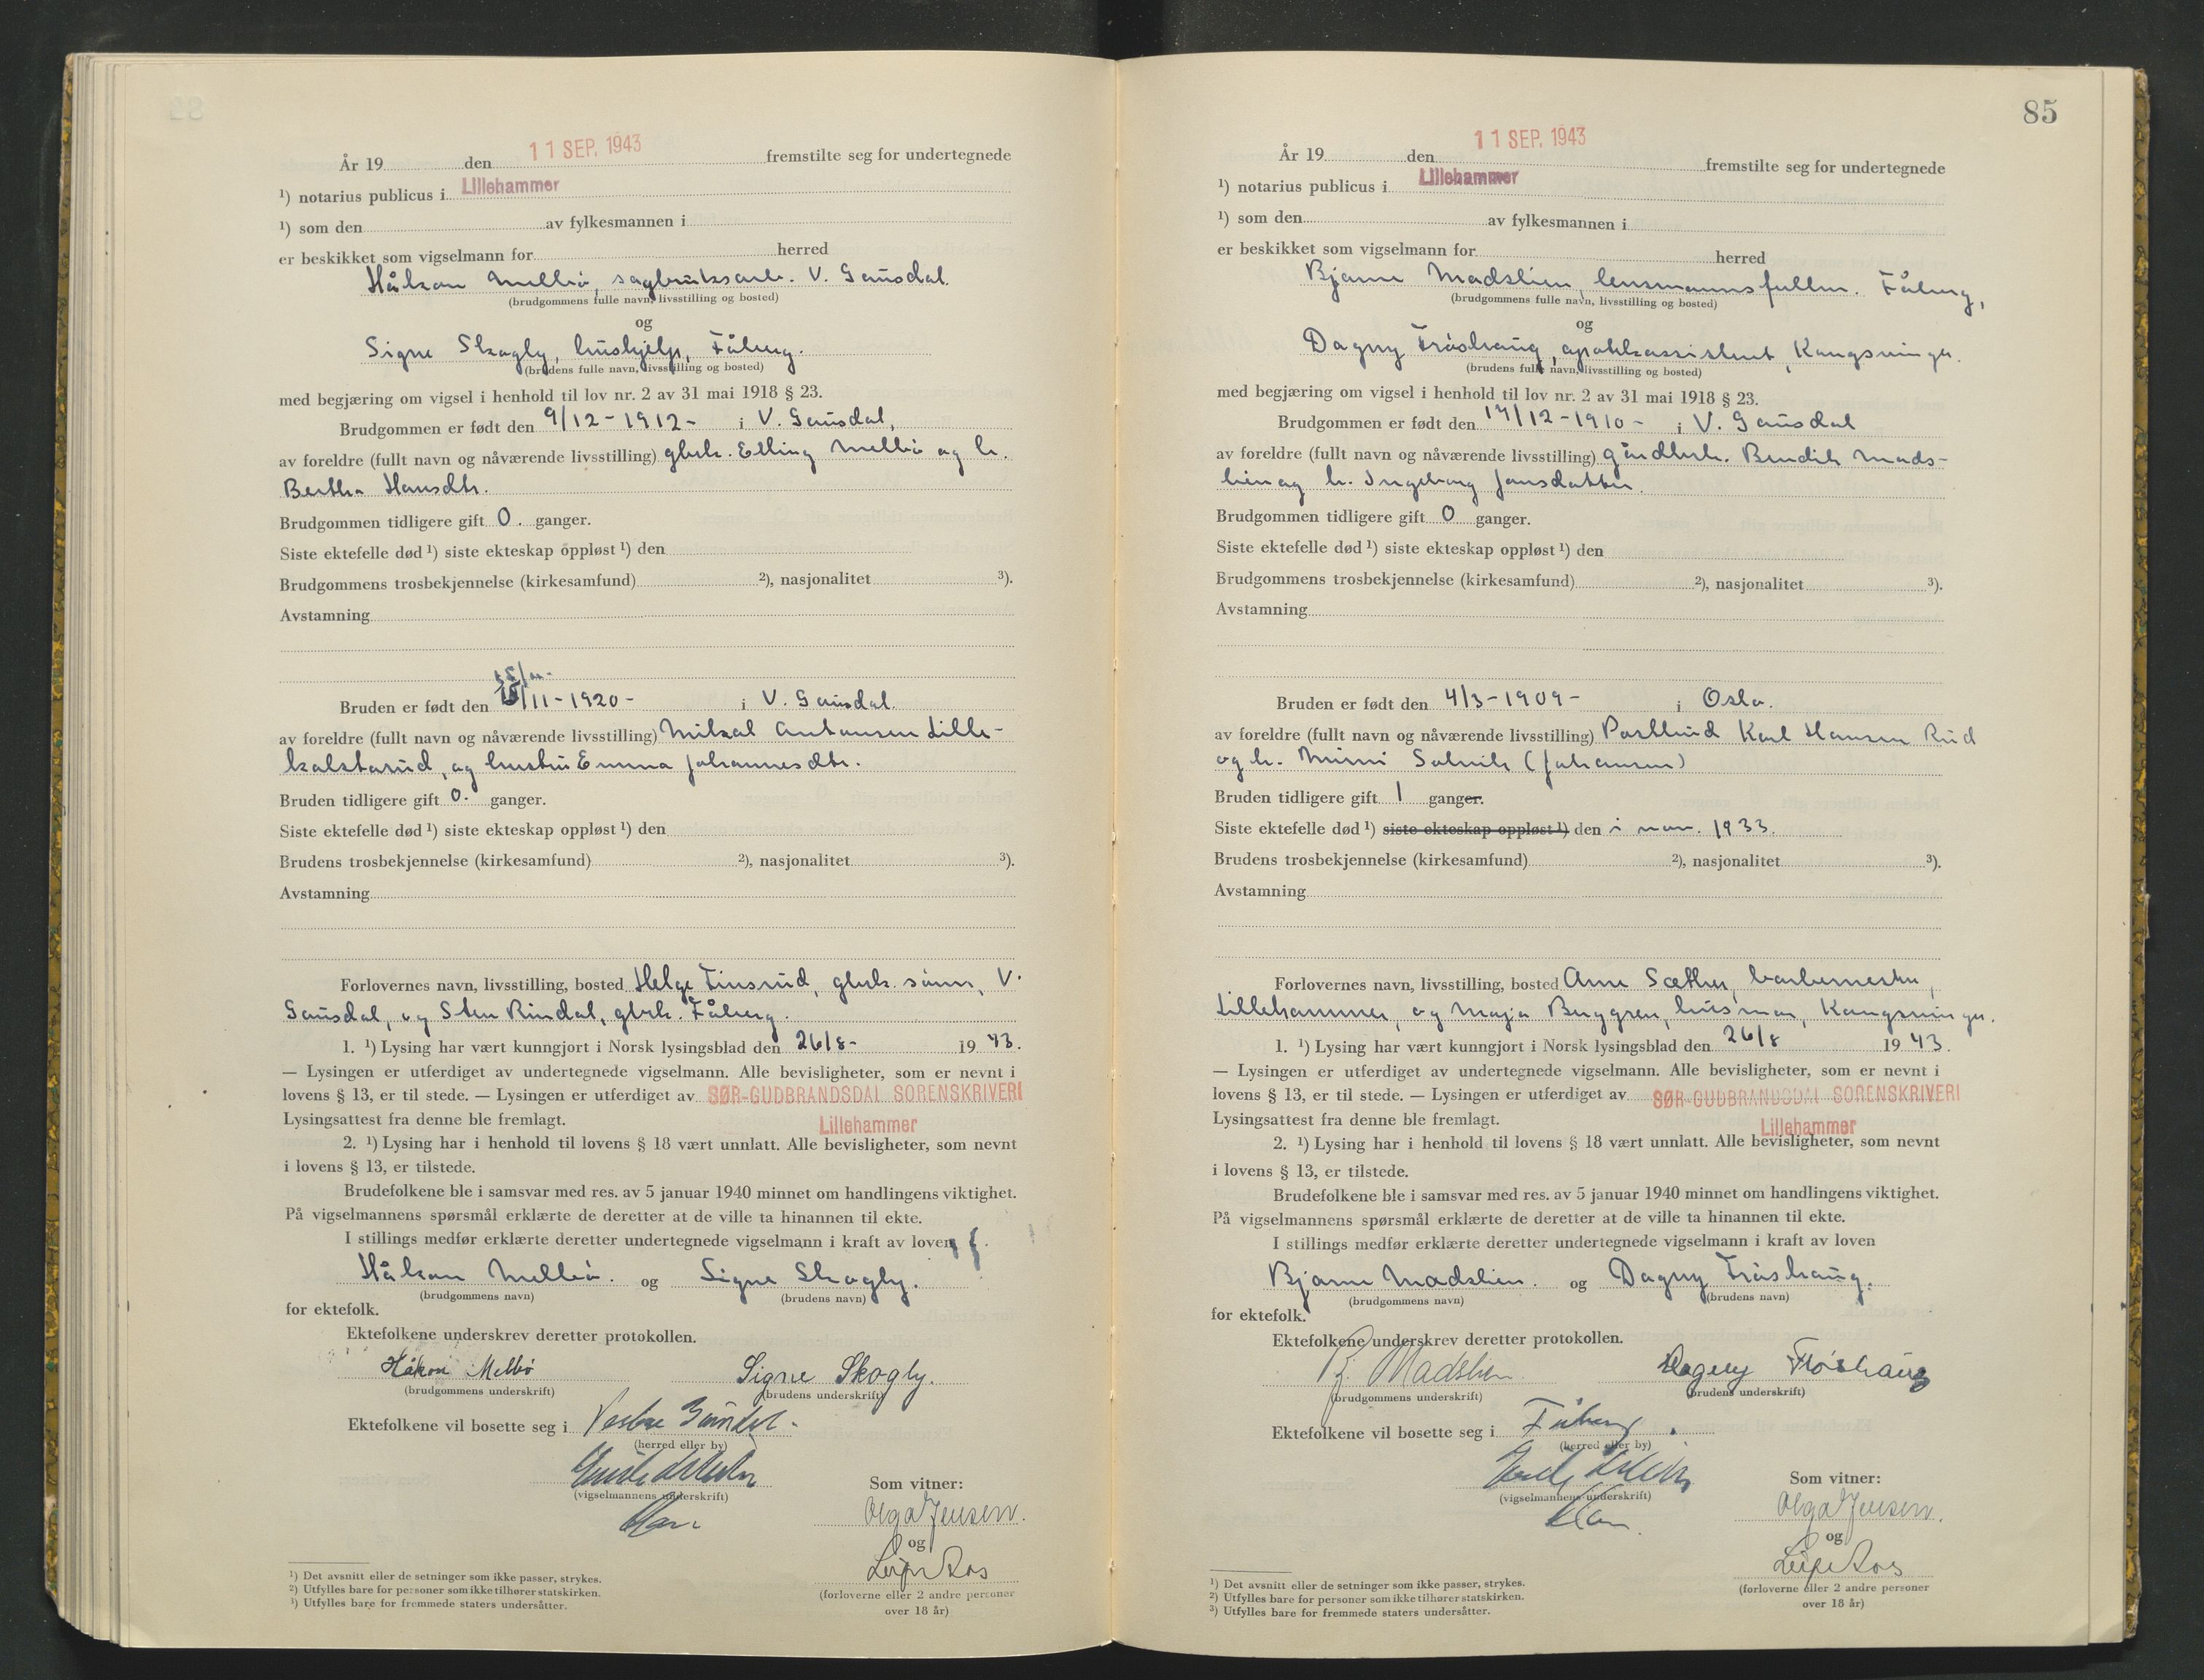 År 19 den 11 SEP. 1943 fremstilte seg for undertegnede
¹) notarius publicus i Lillehammer
¹) som den av fylkesmannen i
er beskikket som vigselmann for herred
Håkon Mellbö, sagbruksarb. V. Gausdal.
(brudgommens fulle navn, livsstilling og bosted)
og
Signe Skogly, hushjelp, Fåberg.
(brudens fulle navn, livsstilling og bosted)
med begjæring om vigsel i henhold til lov nr. 2 av 31 mai 1918 § 23.
Brudgommen er født den 9/12-1912- i V. Gausdal,
av foreldre (fullt navn og nåværende livsstilling) gbrk. Elling Mellbö og h.
Bertha Hansdtr.
Brudgommen tidligere gift 0. ganger.
Siste ektefelle død ¹) siste ekteskap oppløst ¹) den
Brudgommens trosbekjennelse (kirkesamfund) ²), nasjonalitet ³).
Avstamning
Bruden er født den /11-1920- i V. Gausdal.
av foreldre (fullt navn og nåværende livsstilling) Mikal Antonsen Lille-
kolstarud, og hustru Emma Johannesdtr.
Bruden tidligere gift 0. ganger.
Siste ektefelle død ¹) siste ekteskap oppløst ¹) den
Brudens trosbekjennelse (kirkesamfund) ²), nasjonalitet ³).
Avstamning
Forlovernes navn, livsstilling, bosted Helge Finsrud, gbrk. sönn, V.
Gausdal, og Sten Rindal, gbrk. Fåberg.
1. ¹) Lysing har vært kunngjort i Norsk lysingsblad den 26/8- 19 43.
— Lysingen er utferdiget av undertegnede vigselmann. Alle bevisligheter, som er nevnt i
lovens § 13, er til stede. — Lysingen er utferdiget av SØR-GUDBRANDSDAL SORENSKRIVERI
Lysingsattest fra denne ble fremlagt. Lillehammer
2. ¹) Lysing har i henhold til lovens § 18 vært unnlatt. Alle bevisligheter, som nevnt
i lovens § 13, er tilstede.
Brudefolkene ble i samsvar med res. av 5 januar 1940 minnet om handlingens viktighet.
På vigselmannens spørsmål erklærte de deretter at de ville ta hinannen til ekte.
I stillings medfør erklærte deretter undertegnede vigselmann i kraft av loven
Håkon Mellbö. og Signe Skogly.
(brudgommens navn) (brudens navn)
for ektefolk.
Ektefolkene underskrev deretter protokollen.
Håkon Mellbö Signe Skogly.
(brudgommens underskrift) (brudens underskrift)
Ektefolkene vil bosette seg i Vestre Gausdal.
(herred eller by)
(vigselmannens underskrift)
Som vitner:
Olga Jensen.
og
Leif Aas
(forloverne eller 2 andre personer
over 18 år)
¹) Det avsnitt eller de setninger som ikke passer, strykes.
²) Utfylles bare for personer som ikke tilhører statskirken.
³) Utfylles bare for fremmede staters undersåtter.
85
År 19 den 11 SEP. 1943 fremstilte seg for undertegnede
¹) notarius publicus i Lillehammer
¹) som den av fylkesmannen i
er beskikket som vigselmann for herred
Bjarne Madslien, lensmannsfullm. Fåberg,
(brudgommens fulle navn, livsstilling og bosted)
og
Dagny Fröshaug, apotekassistent, Kongsvinger.
(brudens fulle navn, livsstilling og bosted)
med begjæring om vigsel i henhold til lov nr. 2 av 31 mai 1918 § 23.
Brudgommen er født den 17/12-1910- i V. Gausdal
av foreldre (fullt navn og nåværende livsstilling) gårdbrk. Bendik Mads-
lien og h. Ingeborg Jansdatter.
Brudgommen tidligere gift 0 ganger.
Siste ektefelle død ¹) siste ekteskap oppløst ¹) den
Brudgommens trosbekjennelse (kirkesamfund) ²), nasjonalitet ³).
Avstamning
Bruden er født den 4/3-1909- i Oslo.
av foreldre (fullt navn og nåværende livsstilling) Postbud Karl Hansen Rud
og h. Mimi Solvik (Johansen)
Bruden tidligere gift 1 ganger.
Siste ektefelle død ¹) siste ekteskap oppløst ¹) den i nov. 1933.
Brudens trosbekjennelse (kirkesamfund) ²), nasjonalitet ³).
Avstamning
Forlovernes navn, livsstilling, bosted Arne Sæther, barbermester,
Lillehammer, og Maja Berggren, husmor, Kongsvinger.
1. ¹) Lysing har vært kunngjort i Norsk lysingsblad den 26/8 19 43.
— Lysingen er utferdiget av undertegnede vigselmann. Alle bevisligheter, som er nevnt i
lovens § 13, er til stede. — Lysingen er utferdiget av SØR-GUDBRANDSDAL SORENSKRIVERI
Lysingsattest fra denne ble fremlagt. Lillehammer
2. ¹) Lysing har i henhold til lovens § 18 vært unnlatt. Alle bevisligheter, som nevnt
i lovens § 13, er tilstede.
Brudefolkene ble i samsvar med res. av 5 januar 1940 minnet om handlingens viktighet.
På vigselmannens spørsmål erklærte de deretter at de ville ta hinannen til ekte.
I stillings medfør erklærte deretter undertegnede vigselmann i kraft av loven
Bjarne Madslien. og Dagny Fröshaug.
(brudgommens navn) (brudens navn)
for ektefolk.
Ektefolkene underskrev deretter protokollen.
B. Madslien Dagny Fröshaug
(brudgommens underskrift) (brudens underskrift)
Ektefolkene vil bosette seg i Fåberg.
(herred eller by)
(vigselmannens underskrift)
Som vitner:
Olga Jensen.
og
Leif Aas
(forloverne eller 2 andre personer
over 18 år)
¹) Det avsnitt eller de setninger som ikke passer, strykes.
²) Utfylles bare for personer som ikke tilhører statskirken.
³) Utfylles bare for fremmede staters undersåtter.